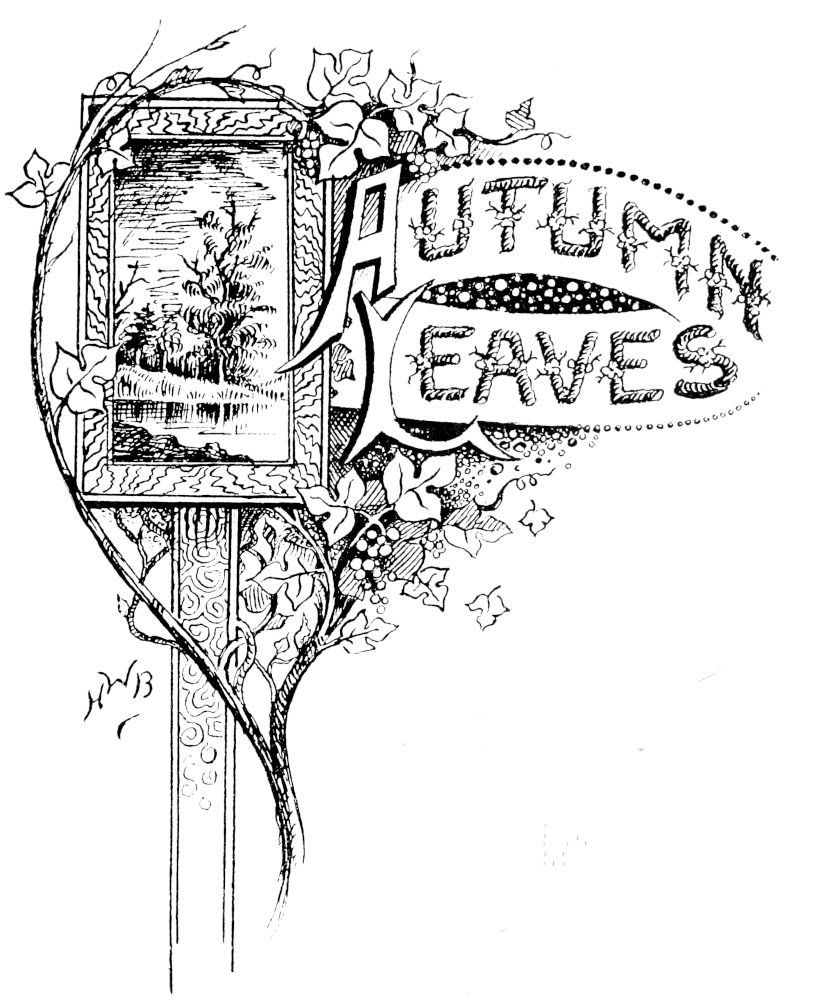 AUTUMN
LEAVES
HWB